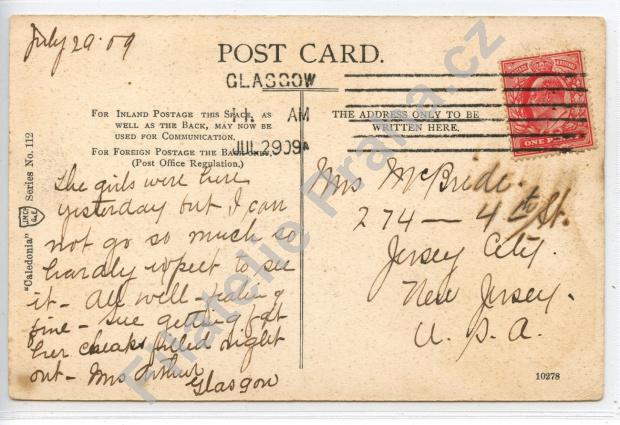 July 29.09
POST CARD.
GLASGOW
AM
JUL 29 09
FOR INLAND POSTAGE THIS SPACE, AS
WELL AS THE BACK, MAY NOW BE
USED FOR COMMUNICATION.
FOR FOREIGN POSTAGE THE BACK ONLY.
(Post Office Regulation.)
THE ADDRESS ONLY TO BE
WRITTEN HERE.
"Caledonia" Series No. 112
The girls were here
yesterday but I can
not go so much so
hardly expect to see
it - All well -
fine - Sue getting fat
her cheaks filled right
out - Mrs Arthur
Glasgow
Mrs McBride.
274 — 4th St.
Jersey City.
New Jersey.
U. S. A.
10278
Filatelie Prama.cz